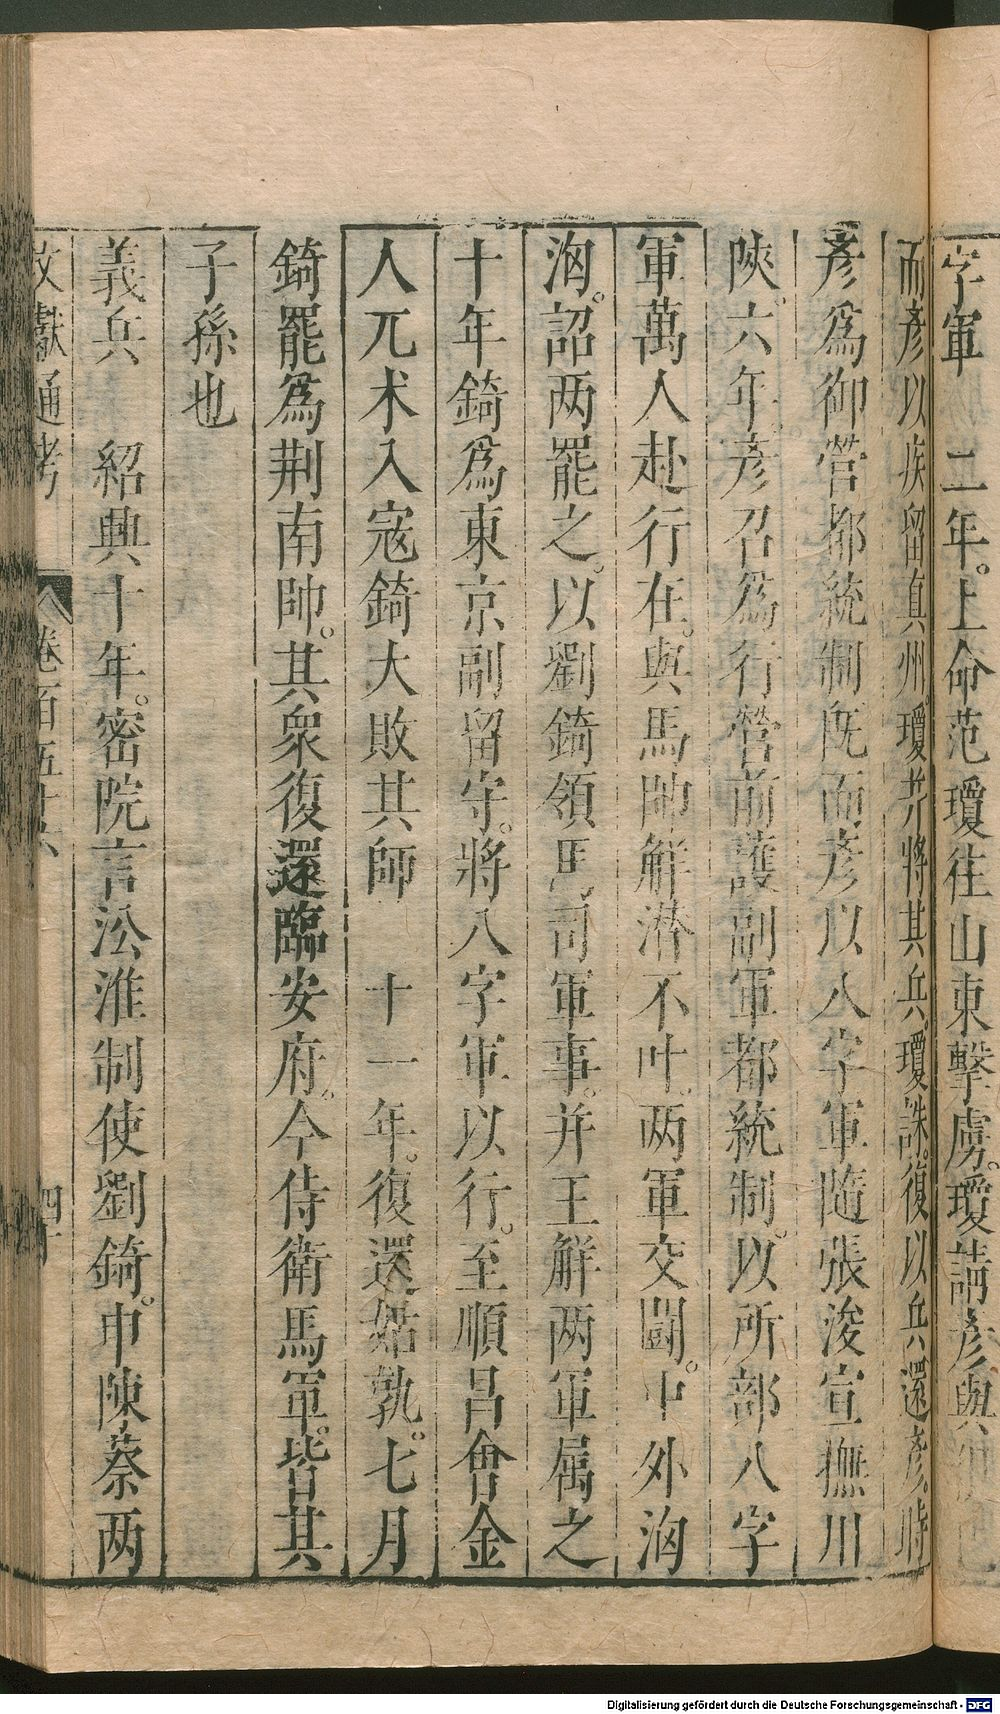 字軍 二年。上命范瓊往山東擊虜。瓊請彥與
而彥以疾留真州。瓊并將其兵。瓊誅。復以兵還彥。時
彥爲御營都統制。旣而彥以八字軍隨張浚宣撫川
陝。六年。彥召爲行營前護副軍都統制。以所部八字
軍萬人赴行在。與馬帥解潛不叶。两軍交鬪。中外洶
洶。詔两罷之。以劉錡領馬司軍事。并王解两軍属之
十年錡爲東京副留守。將八字軍以行。至順昌會金
人兀术入寇錡大敗其師 十一年。復還姑孰。七月
錡罷爲荆南帥。其衆復還臨安府。今侍衛馬軍。皆其
子孫也
義兵 紹興十年。密院言㳂淮制使劉錡。申陳蔡两
文獻通考 卷百五十六 四十
Digitalisierung gefördert durch die Deutsche Forschungsgemeinschaft - DFG